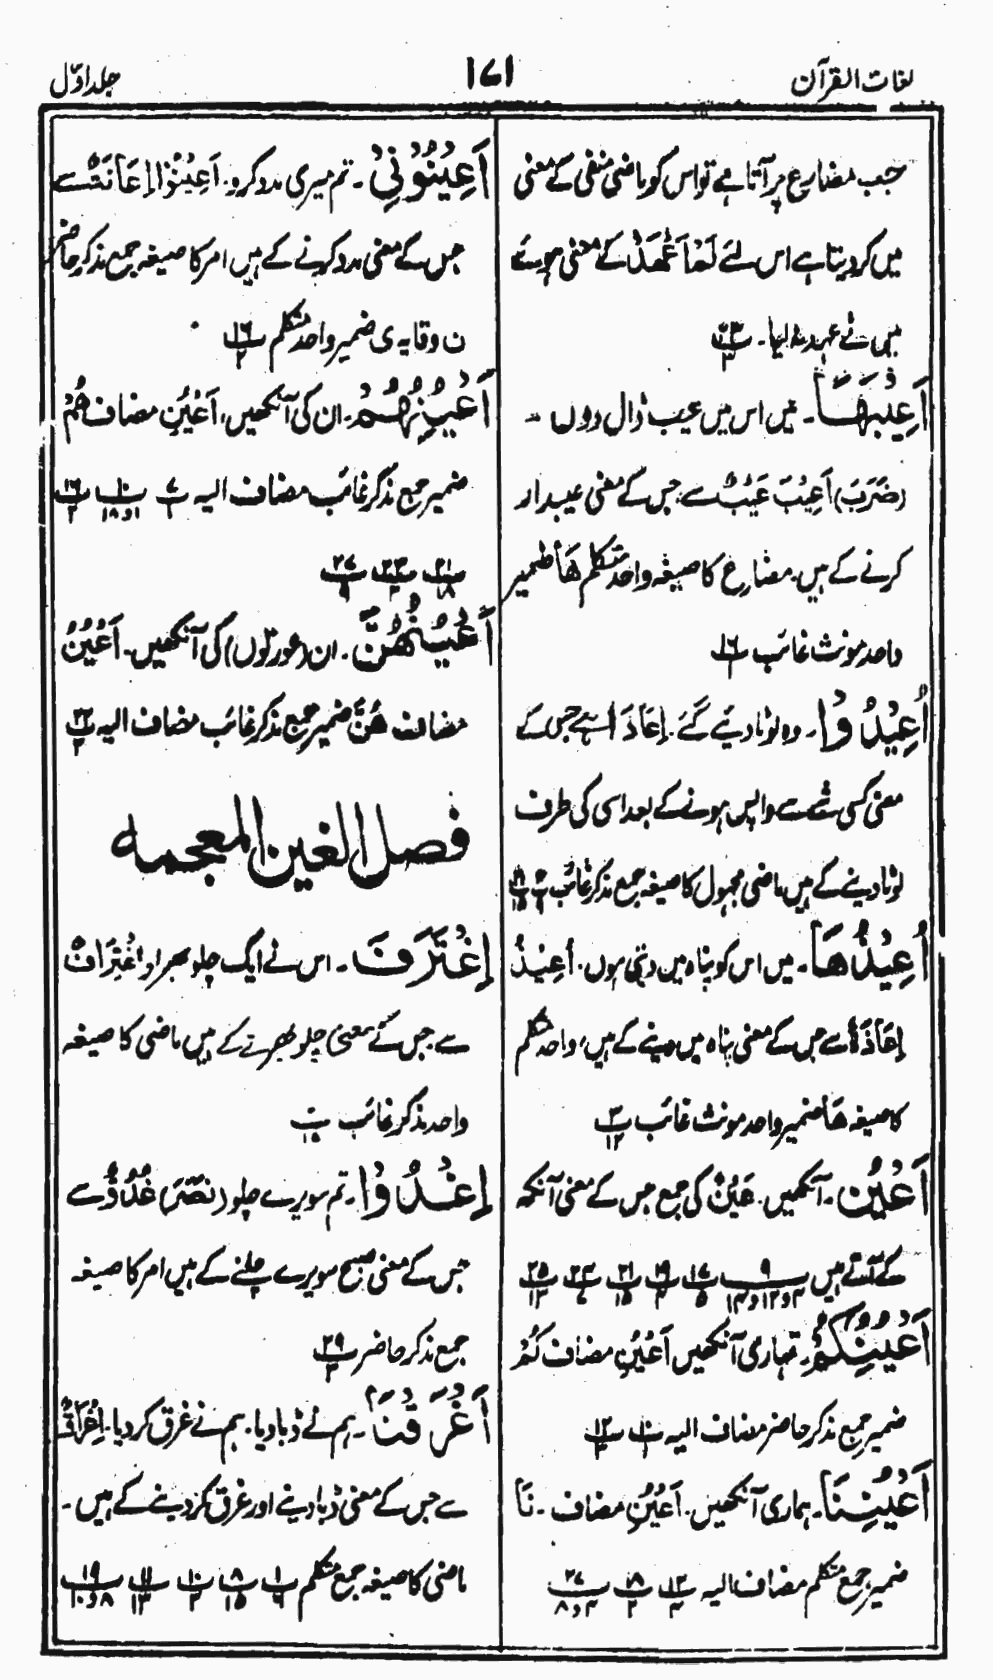 لغات القرآن
۱۷۱
جلد اوّل
جب مضارع پر آتا ہے تو اس کو ماضی منفی کے معنی
میں کر دیتا ہے اس لئے لَمْ اَعْهَدْ کے معنی ہوئے
میں نے عہد نہ لیا۔ پ۲۳/۳
اَعِيْبَهَا۔ میں اس میں عیب ڈال دوں ۔
(ضَرَبَ) اَعِيْبَ عَيْبٌ سے جس کے معنی عیبدار
کرنے کے ہیں۔ مضارع کا صیغہ واحد متکلم هَا ضمیر
واحد مونث غائب پ۱۶/۱
اُعِيْدُوْا۔ وہ لوٹا دیئے گئے۔ اِعَادَۃٌ سے جس کے
معنی کسی شے سے واپس ہونے کے بعد اسی کی طرف
لوٹا دینے کے ہیں ماضی مجہول کا صیغہ جمع مذکر غائب
اُعِيْذُهَا۔ میں اس کو پناہ میں دیتی ہوں۔ اُعِيْذُ
اِعَاذَۃٌ سے جس کے معنی پناہ میں دینے کے ہیں، واحد متکلم
کا صیغہ هَا ضمیر واحد مونث غائب پ۳/۱۲
اَعْيُنٌ۔ آنکھیں۔ عَيْنٌ کی جمع جس کے معنی آنکھ
کے آتے ہیں پ۹/۳و۱۲و۱۳ پ۱۷/۵ پ۱۹/۴ پ۲۱/۱۵ پ۲۴/۷ پ۲۵/۱۳
اَعْيُنِكُمْ۔ تمہاری آنکھیں اَعْيُنِ مضاف كُمْ
ضمیر جمع مذکر حاضر مضاف الیہ پ۱۰/۱ پ۱۲/۳
اَعْيُنِنَا۔ ہماری آنکھیں۔ اَعْيُنِ مضاف ۔ نَا
ضمیر جمع متکلم مضاف الیہ پ۱۲/۴ پ۱۸/۲ پ۲۷/۴و۸
اَعِيْنُوْنِيْ۔ تم میری مدد کرو۔ اَعِيْنُوْا اِعَانَتٌ سے
جس کے معنی مدد کرنے کے ہیں امر کا صیغہ جمع مذکر حاضر
ن وقایہ ی ضمیر واحد متکلم پ۱۶/۲
اَعْيُنُهُمْ۔ ان کی آنکھیں، اَعْيُنِ مضاف هُمْ
ضمیر جمع مذکر غائب مضاف الیہ پ۷/۱ پ۱۰/۱و۱۸ پ۱۶/۲
پ۲۱/۱۸ پ۲۳/۳ پ۲۷/۹
اَعْيُنُهُنَّ۔ ان (عورتوں) کی آنکھیں۔ اَعْيُنُ
مضاف هُنَّ ضمیر جمع مذکر غائب مضاف الیہ پ۲۲/۳
فصل الغین المعجمہ
اِغْتَرَفَ۔ اس نے ایک چلو بھرا۔ اِغْتِرَافٌ
سے جس کے معنی چلو بھرنے کے ہیں ماضی کا صیغہ
واحد مذکر غائب پ۲/۱۷
اِغْدُوْا۔ تم سویرے چلو (نَصَرَ) غُدُوٌّ سے
جس کے معنی صبح سویرے چلنے کے ہیں امر کا صیغہ
جمع مذکر حاضر پ۲۹/۳
اَغْرَقْنَا۔ ہم نے ڈبا دیا۔ ہم نے غرق کر دیا۔ اِغْرَاقٌ
سے جس کے معنی ڈبا دینے اور غرق کر دینے کے ہیں۔
ماضی کا صیغہ جمع متکلم پ۱/۶ پ۸/۱۵ پ۱۰/۳ پ۱۱/۱۳ پ۱۹/۸و۱۰